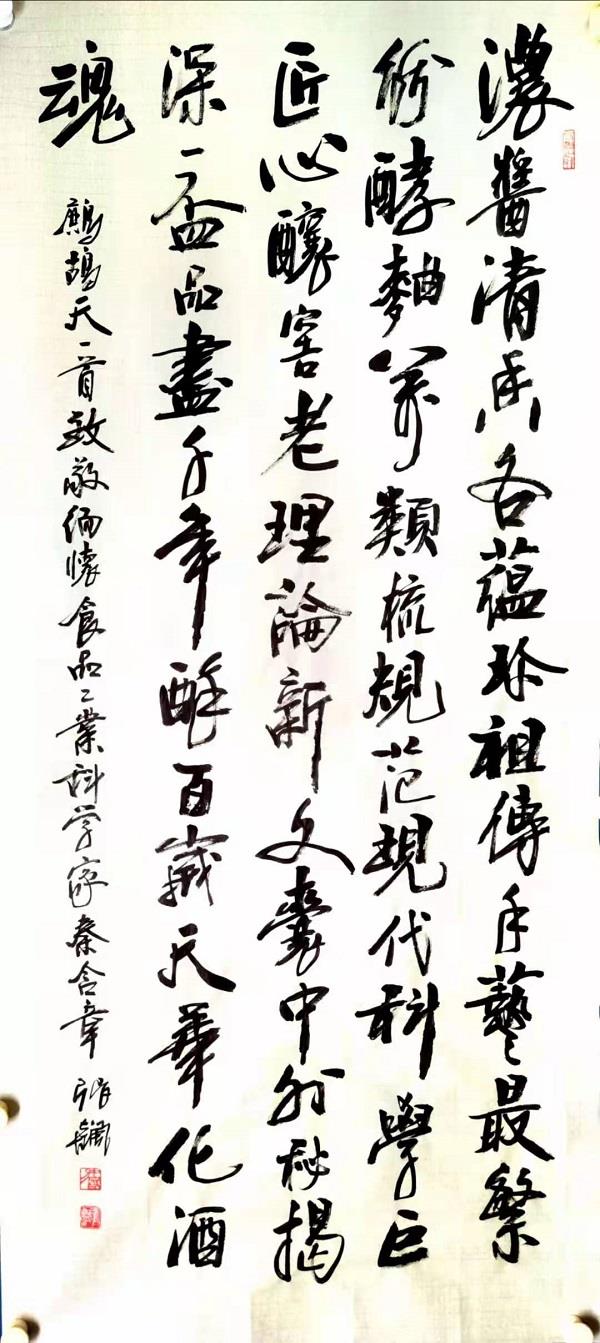 濃醬清香各蘊珍祖傳手藝最繁
紛酵麴分類梳規范現代科學巨
匠心釀窖老理論新文囊中外秘揭
深一盃品盡千年醉百歲天華化酒
魂
鷓鴣天一首致敬緬懷食品工業科学家秦含章